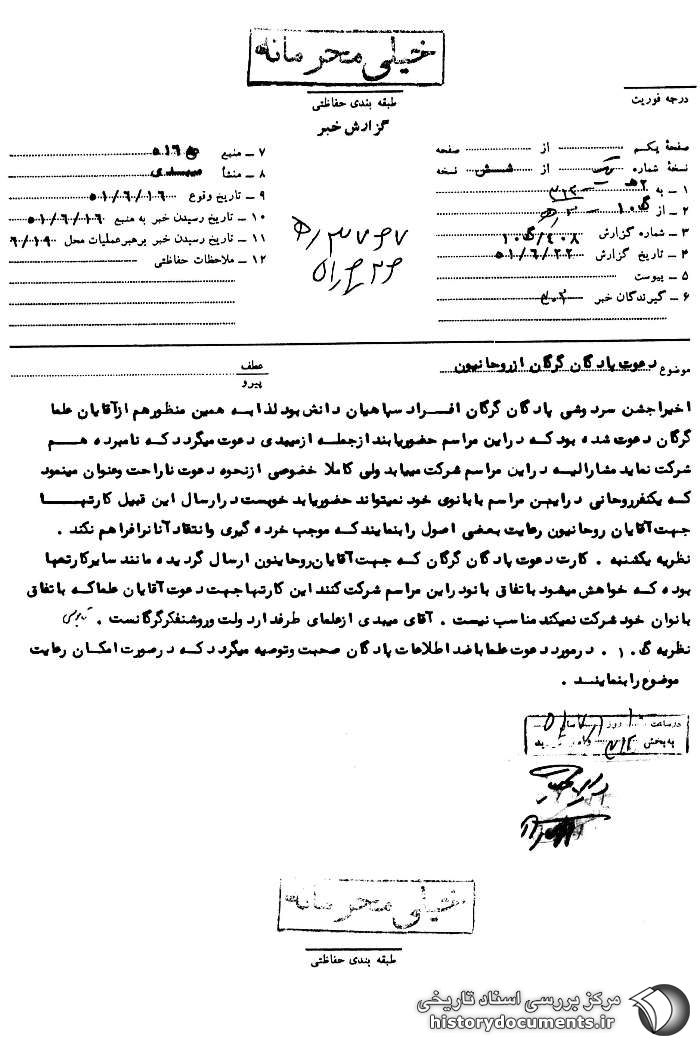 خیلی محرمانه
طبقه بندی حفاظتی
درجه فوریت
گزارش خبر
صفحه یکم از صفحه
نسخه شماره یک از شش نسخه
۱ ـ به ۲ﻫ ـ ۳۲۲
۲ ـ از گ ۱۰
۳ ـ شماره گزارش ۱۰گ/۴۰۸
۴ ـ تاریخ گزارش ۵۱/۶/۲۲
۵ ـ پیوست
۶ ـ گیرندگان خبر ۲۰۳
۷ ـ منبع ۵۱۶
۸ ـ منشأ میبدی
۹ ـ تاریخ وقوع ۵۱/۶/۱۶
۱۰ ـ تاریخ رسیدن خبر به منبع ۵۱/۶/۱۶
۱۱ ـ تاریخ رسیدن خبر برهبر عملیات محل ۶/۱۹
۱۲ ـ ملاحظات حفاظتی
موضوع دعوت پادگان گرگان از روحانیون
عطف
پیرو
اخیرا جشن سردوشی پادگان گرگان افراد سپاهیان دانش بود لذا به همین منظور هم از آقایان علما
گرگان دعوت شده بود که در این مراسم حضور یابند از جمله از میبدی دعوت میگردد که نامبرده هم
شرکت نماید مشارالیه در این مراسم شرکت میابد ولی کاملا خصوصی از نحوه دعوت ناراحت وعنوان مینمود
که یکنفر روحانی در این مراسم با بانوی خود نمیتواند حضور یابد خوبست در ارسال این قبیل کارتها
جهت آقایان روحانیون رعایت بعضی اصول را بنمایند که موجب خرده گیری وانتقاد آنانرا فراهم نکند .
نظریه یکشنبه . کارت دعوت پادگان گرگان که جهت آقایان روحانیون ارسال گردیده مانند سایر کارتها
بوده که خواهش میشود با تفاق بانو در این مراسم شرکت کنند این کارتها جهت دعوت آقایان علما که با تفاق
بانوان خود شرکت نمیکند مناسب نیست . آقای میبدی از علمای طرفدار دولت وروشنفکر گرگانست .
نظریه گ ۱۰ . در مورد دعوت علما با ضد اطلاعات پادگان صحبت وتوصیه میگردد که در صورت امکان رعایت
موضوع را بنمایند .
در ساعت روز
به بخش ۳۱۲
خیلی محرمانه
طبقه بندی حفاظتی
مرکز بررسی اسناد تاریخی
historydocuments.ir